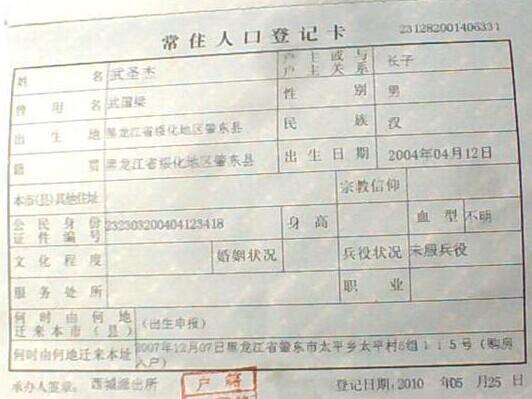 常住人口登记卡
231282001406331
姓名 武圣杰 户主或与户主关系 长子
曾用名 武国梁 性别 男
出生地 黑龙江省绥化地区肇东县 民族 汉
籍贯 黑龙江省绥化地区肇东县 出生日期 2004年04月12日
本市(县)其他住址 宗教信仰
公民身份证件编号 232303200404123418 身高 血型 不明
文化程度 婚姻状况 兵役状况 未服兵役
服务处所 职业
何时由何地迁来本市(县) (出生申报)
何时由何地迁来本址 2007年12月07日黑龙江省肇东市太平乡太平村5组115号(购房入户)
承办人签章: 西城派出所 户籍 登记日期:2010年05月25日